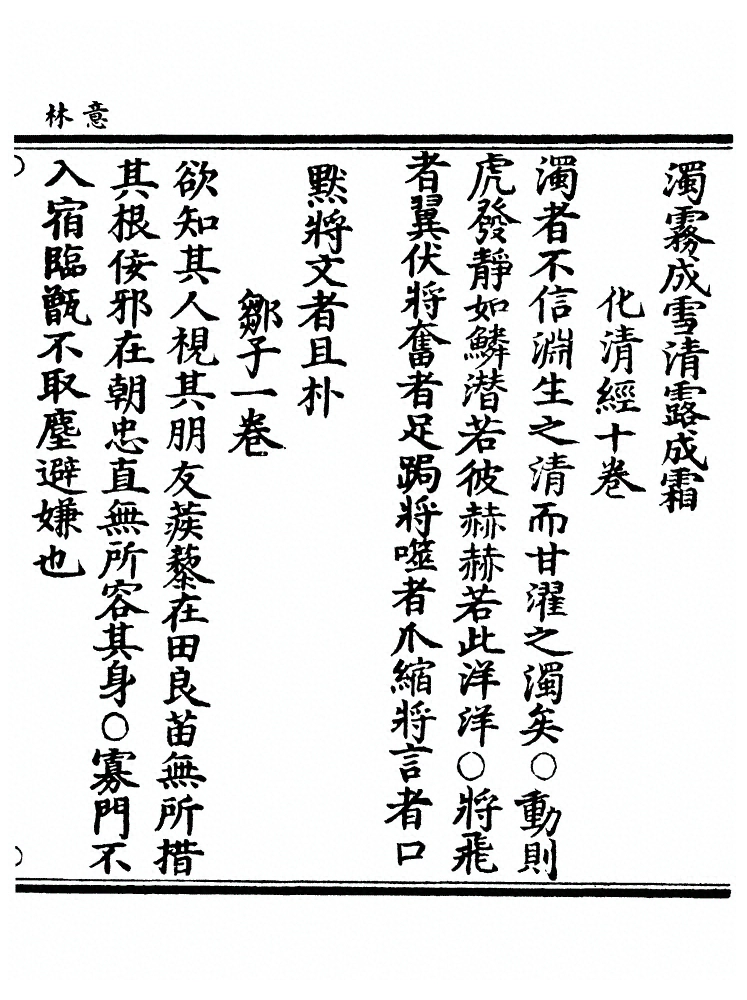 意林
濁霧成雪清露成霜
化清經十卷
濁者不信淵生之清而甘濯之濁矣○動則
虎發靜如鱗潛若彼赫赫若此洋洋○將飛
者翼伏將奮者足跼將噬者爪縮將言者口
默將文者且朴
鄒子一卷
欲知其人視其朋友蒺藜在田良苗無所措
其根佞邪在朝忠直無所容其身○寡門不
入宿臨甑不取塵避嫌也